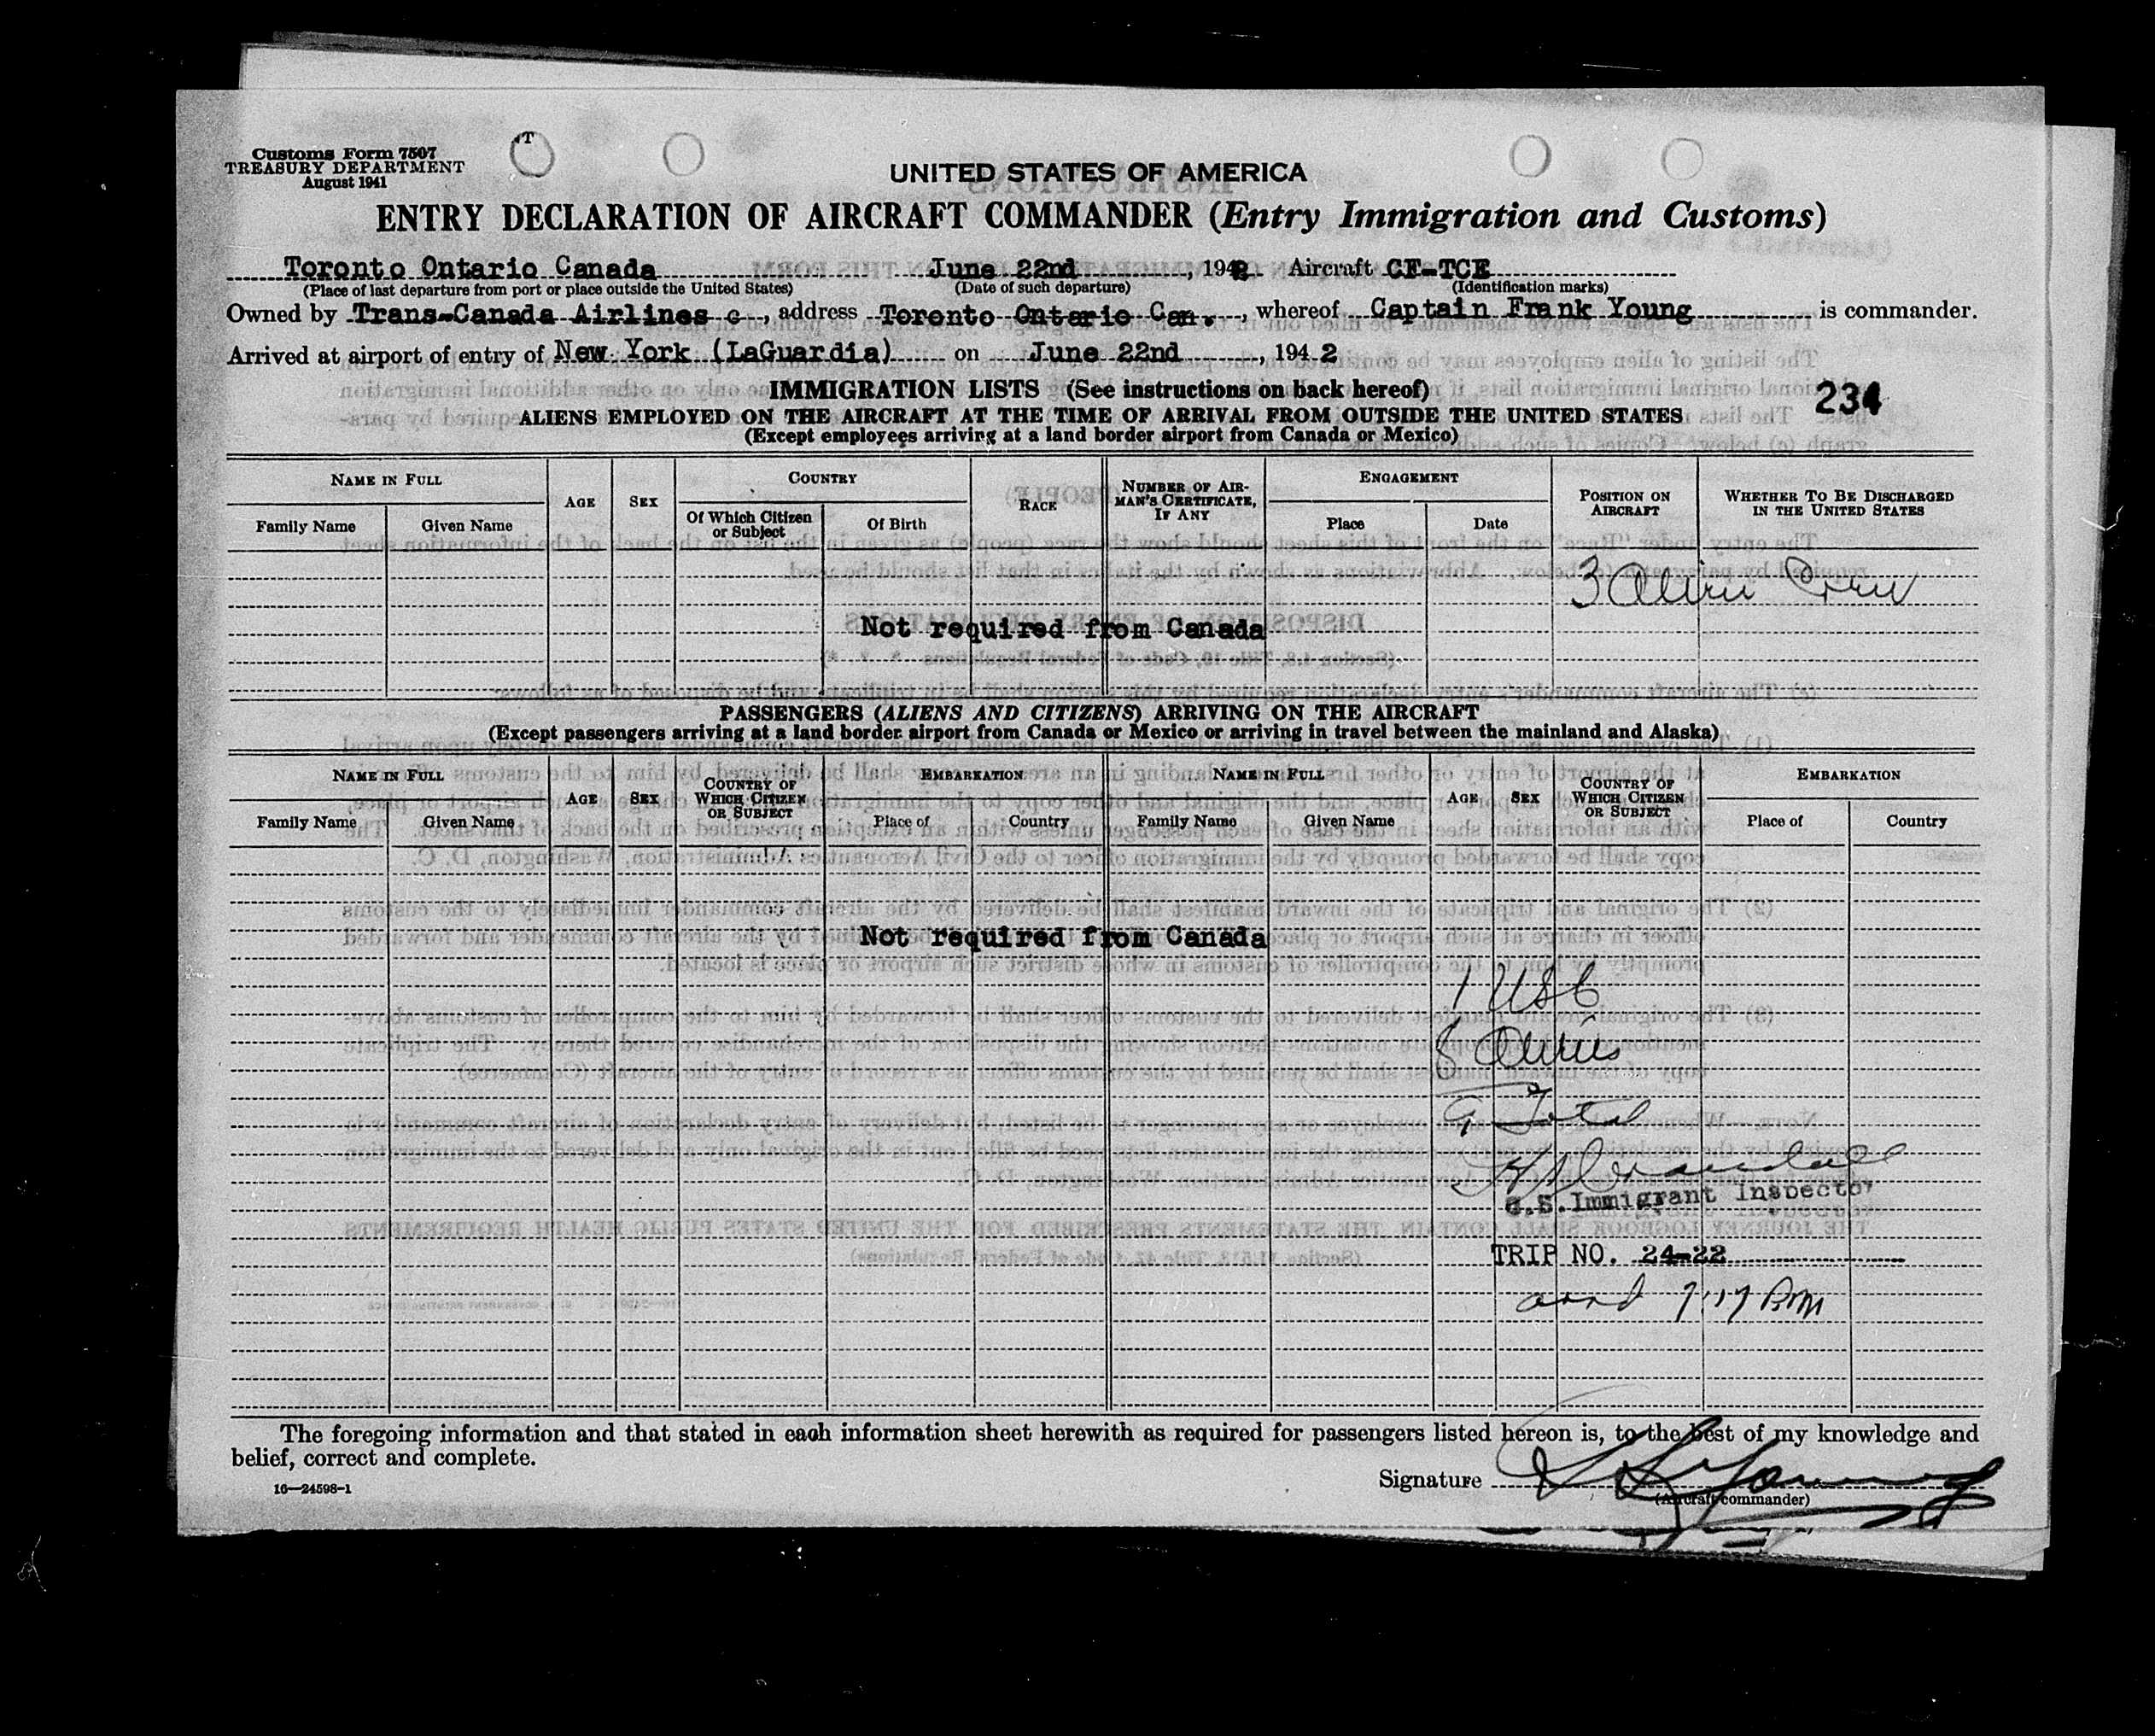 Customs Form 7507
TREASURY DEPARTMENT
August 1941
UNITED STATES OF AMERICA
ENTRY DECLARATION OF AIRCRAFT COMMANDER (Entry Immigration and Customs)
Toronto Ontario Canada June 22nd, 1942 Aircraft CF-TCE
(Place of last departure from port or place outside the United States) (Date of such departure) (Identification marks)
Owned by Trans-Canada Airlines, address Toronto Ontario Can., whereof Captain Frank Young is commander.
Arrived at airport of entry of New York (LaGuardia) on June 22nd, 1942
IMMIGRATION LISTS (See instructions on back hereof)
234
ALIENS EMPLOYED ON THE AIRCRAFT AT THE TIME OF ARRIVAL FROM OUTSIDE THE UNITED STATES
(Except employees arriving at a land border airport from Canada or Mexico)
NAME IN FULL
Family Name Given Name
AGE SEX
COUNTRY
Of Which Citizen or Subject Of Birth
RACE
NUMBER OF AIRMAN'S CERTIFICATE, IF ANY
ENGAGEMENT
Place Date
POSITION ON AIRCRAFT
WHETHER TO BE DISCHARGED IN THE UNITED STATES
3 Alien Crew
Not required from Canada
PASSENGERS (ALIENS AND CITIZENS) ARRIVING ON THE AIRCRAFT
(Except passengers arriving at a land border airport from Canada or Mexico or arriving in travel between the mainland and Alaska)
NAME IN FULL
Family Name Given Name
AGE SEX
COUNTRY OF WHICH CITIZEN OR SUBJECT
EMBARKATION
Place of Country
NAME IN FULL
Family Name Given Name
AGE SEX
COUNTRY OF WHICH CITIZEN OR SUBJECT
EMBARKATION
Place of Country
Not required from Canada
1 USC
8 Aliens
9 Total
Crandall
U.S. Immigrant Inspector
TRIP NO. 24-22
arrd 7:17 PM
The foregoing information and that stated in each information sheet herewith as required for passengers listed hereon is, to the best of my knowledge and
belief, correct and complete.
Signature Young
(Aircraft commander)
16—24598-1